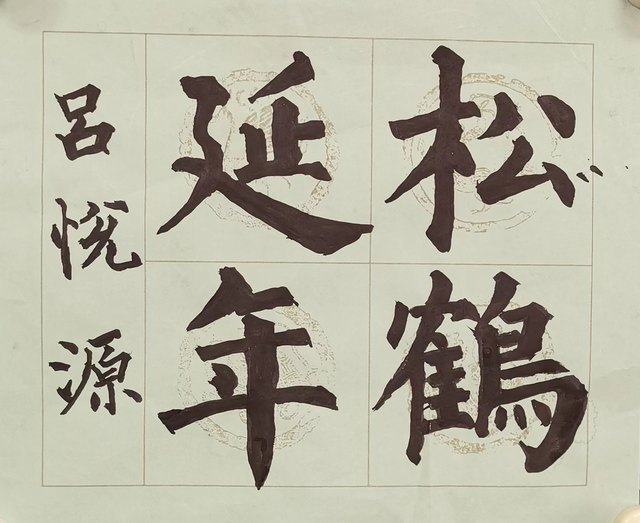 松鶴
延年
吕悦源